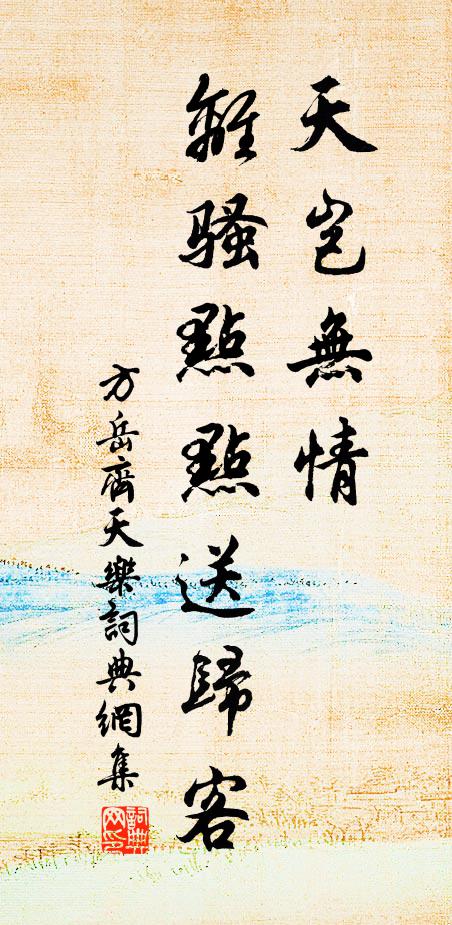 天豈無情
離騷點點送歸客
方岳齊天樂詞典網集
詞典網印